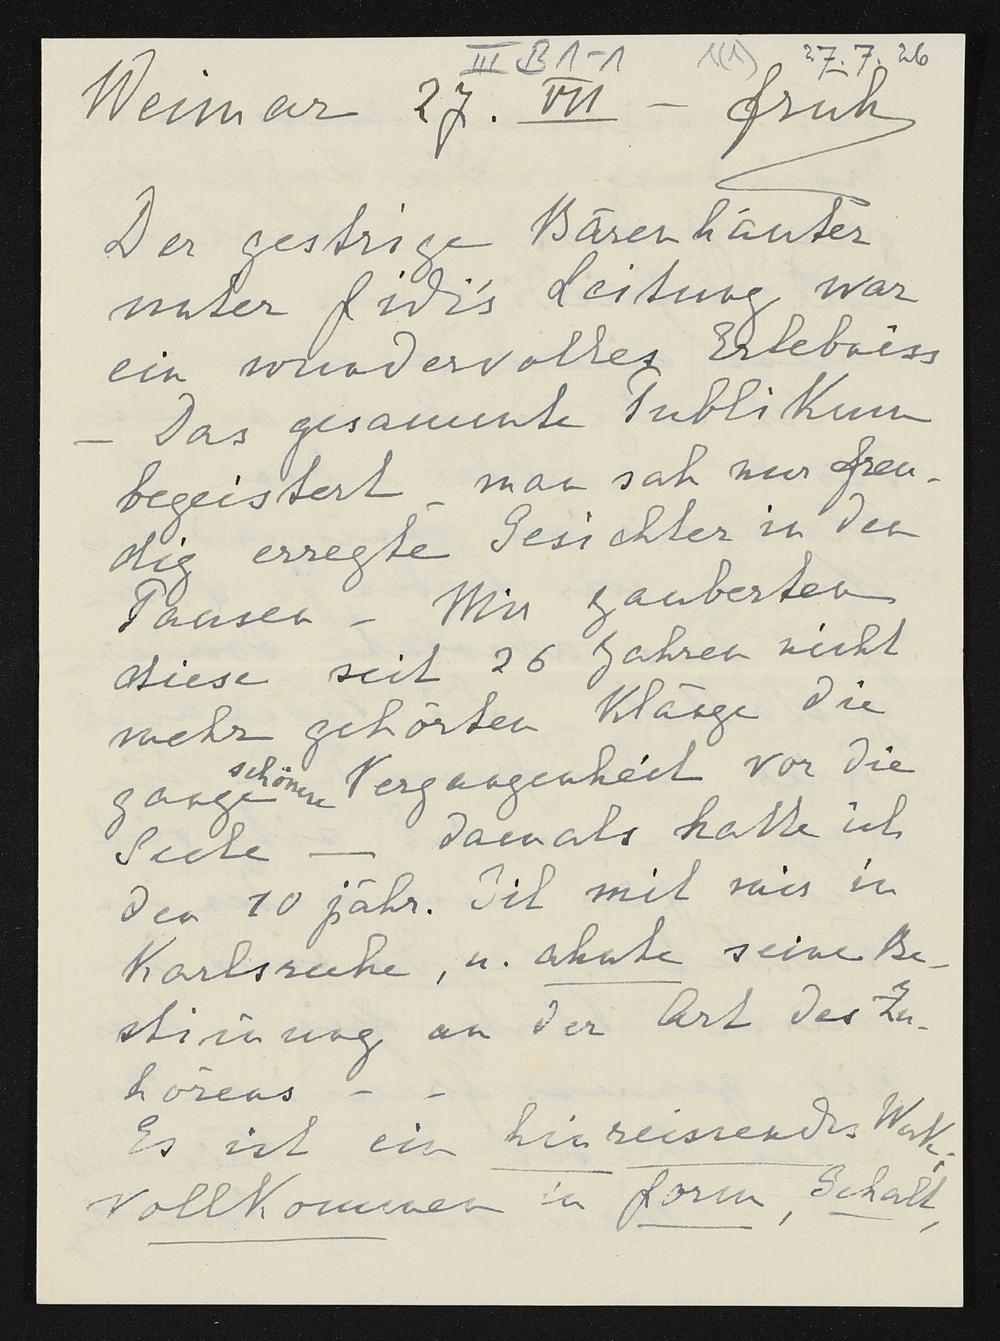 III B 1-1 1(1) 27.7.26
Weimar 27. VII – früh
Der gestrige Bärenhäuter
unter Fidi's Leitung war
ein wundervolles Erlebniss
– Das gesammte Publikum
begeistert – man sah nur freu-
dig erregte Gesichter in den
Pausen – Mir zauberten
diese seit 26 Jahren nicht
mehr gehörten Klänge die
ganze schöne Vergangenheit vor die
Seele — damals hatte ich
den 10 jähr. Til mit mir in
Karlsruhe, u. ahnte seine Be-
stimung an der Art des Zu-
hörens – –
Es ist ein hinreissendes Werk,
vollkommen in Form, Gehalt,